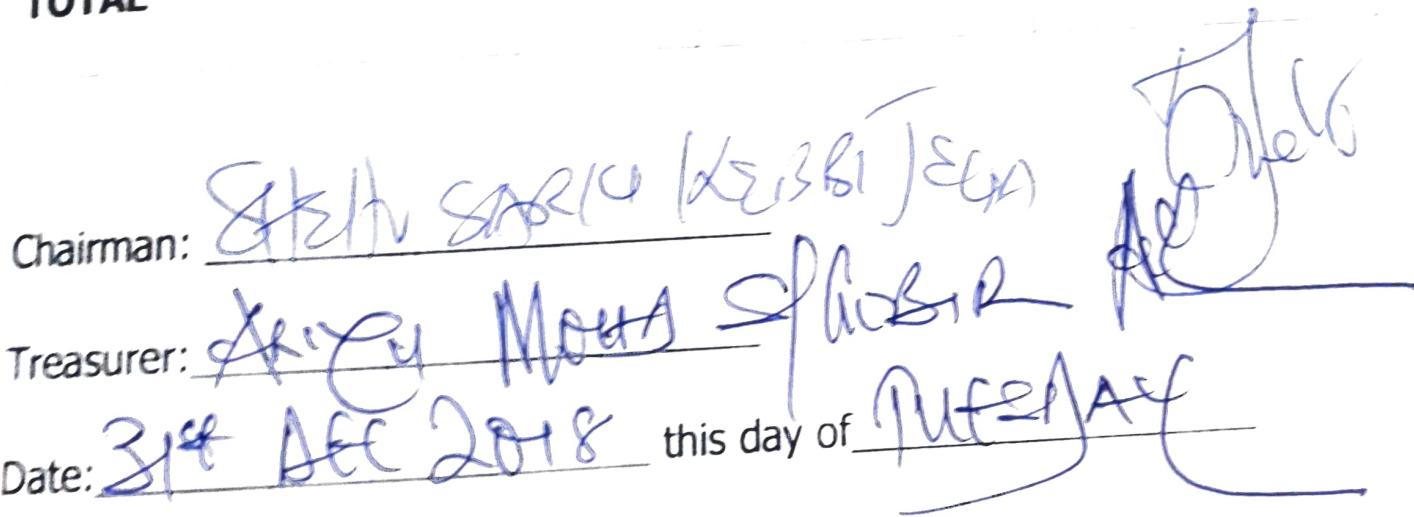 TOTAL
Chairman: SHEHU SARKI KEBBI JEGA
Treasurer: ALIYU MOHD S/GOBIR
Date: 31st DEC 2018 this day of TUESDAY